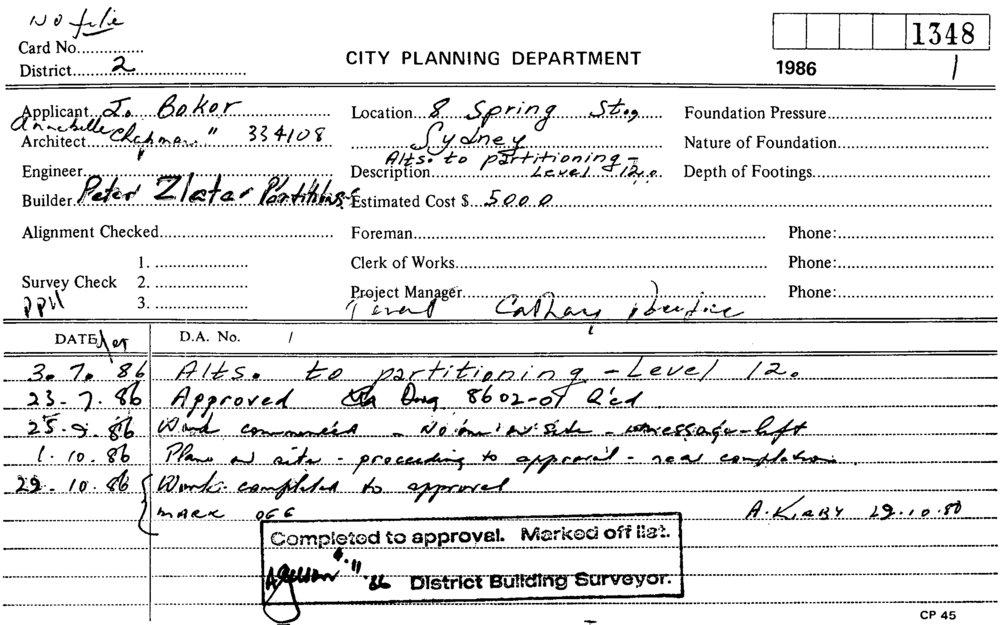 No file
Card No.
1348
District 2
CITY PLANNING DEPARTMENT
1986 1
Applicant J. Baker
Location 8 Spring St.,
Foundation Pressure
Annabelle
Architect Chapman " 334108
Sydney
Nature of Foundation
Engineer
Alts. to partitioning -
Description Level 12.
Depth of Footings
Builder Peter Zlatar Partitions
Estimated Cost $ 5000
Alignment Checked
Foreman
Phone:
1.
Clerk of Works
Phone:
Survey Check 2.
Project Manager
Phone:
3.
Cathay
DATE
D.A. No. /
3. 7. 86 Alts. to partitioning - Level 12.
23 - 7. 86 Approved Dwg 8602-01
25 - 9. 86 Work commenced - No one on site - message left
1. 10. 86 Plans on site - proceeding to approval - near completion.
29 - 10. 86 Work completed to approval
MARK OFF
A. KIRBY 29.10.86
Completed to approval. Marked off list.
86 District Building Surveyor.
CP 45